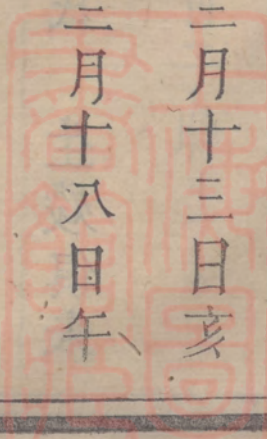 二月十三日亥
二月十八日午